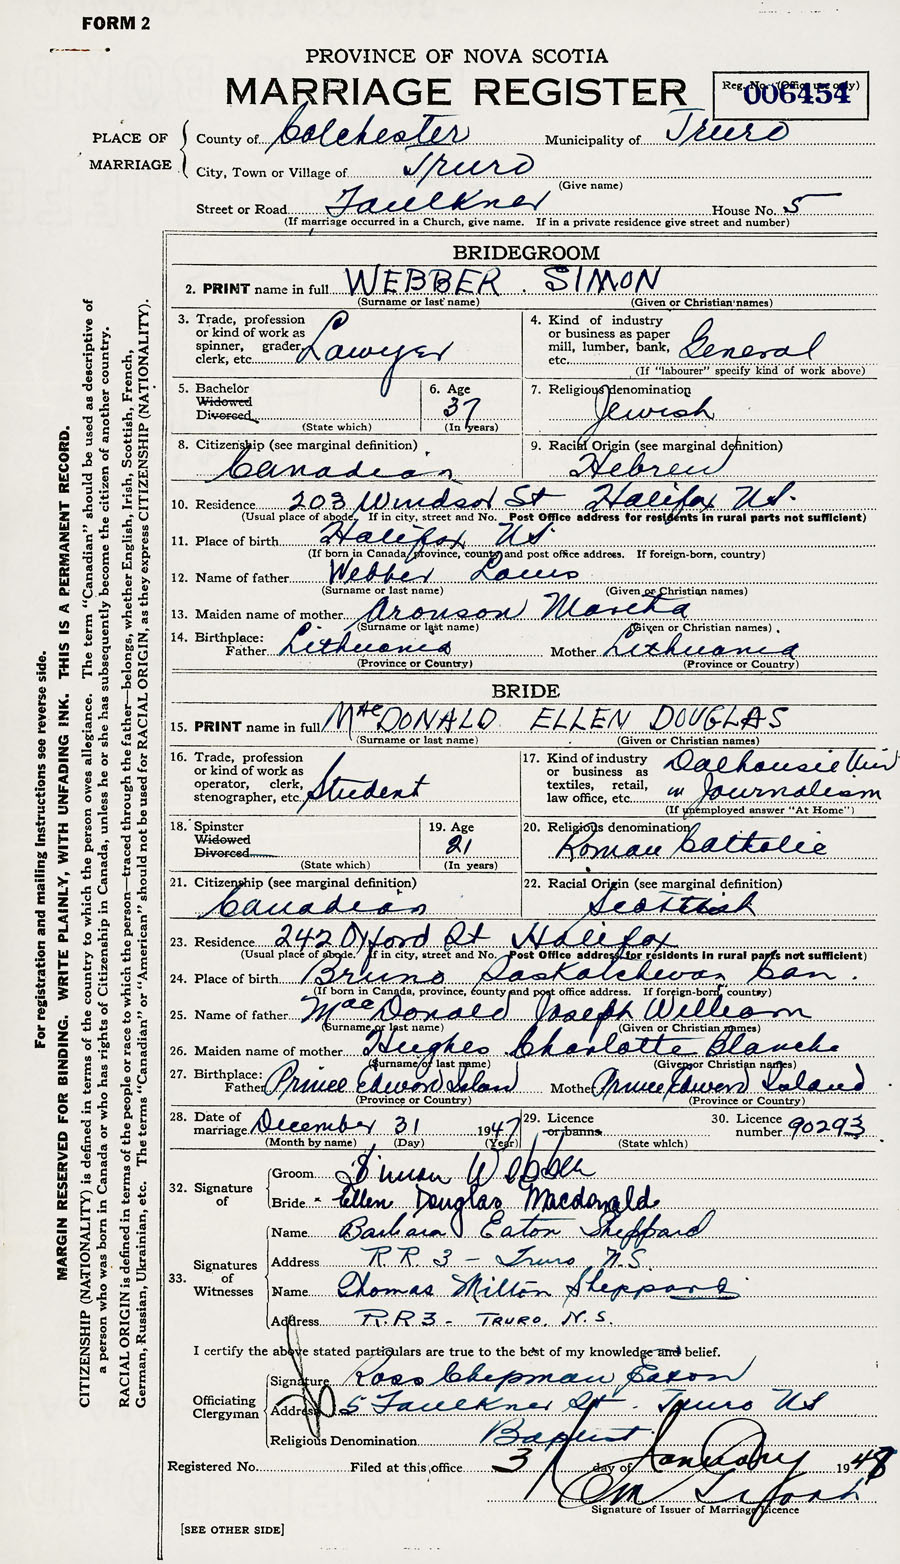 FORM 2
PROVINCE OF NOVA SCOTIA
MARRIAGE REGISTER
Reg. No. (Office use only)
006454
PLACE OF MARRIAGE
County of Colchester Municipality of Truro
City, Town or Village of Truro
(Give name)
Street or Road Faulkner House No. 5
(If marriage occurred in a Church, give name. If in a private residence give street and number)
BRIDEGROOM
2. PRINT name in full WEBBER . SIMON
(Surname or last name) (Given or Christian names)
3. Trade, profession or kind of work as spinner, grader, clerk, etc. Lawyer
4. Kind of industry or business as paper mill, lumber, bank, etc. General
(If "labourer" specify kind of work above)
5. Bachelor
Widowed
Divorced
(State which)
6. Age 37
(In years)
7. Religious denomination
Jewish
8. Citizenship (see marginal definition)
Canadian
9. Racial Origin (see marginal definition)
Hebrew
10. Residence 203 Windsor St Halifax N.S.
(Usual place of abode. If in city, street and No. Post Office address for residents in rural parts not sufficient)
11. Place of birth Halifax NS
(If born in Canada, province, county and post office address. If foreign-born, country)
12. Name of father Webber Louis
(Surname or last name) (Given or Christian names)
13. Maiden name of mother Aronson Martha
(Surname or last name) (Given or Christian names)
14. Birthplace:
Father Lithuania Mother Lithuania
(Province or Country) (Province or Country)
BRIDE
15. PRINT name in full MacDONALD ELLEN DOUGLAS
(Surname or last name) (Given or Christian names)
16. Trade, profession or kind of work as operator, clerk, stenographer, etc. Student
17. Kind of industry or business as textiles, retail, law office, etc. Dalhousie Univ in Journalism
(If unemployed answer "At Home")
18. Spinster
Widowed
Divorced
(State which)
19. Age
21
(In years)
20. Religious denomination
Roman Catholic
21. Citizenship (see marginal definition)
Canadian
22. Racial Origin (see marginal definition)
Scottish
23. Residence 242 Oxford St Halifax
(Usual place of abode. If in city, street and No. Post Office address for residents in rural parts not sufficient)
24. Place of birth Bruno Saskatchewan Can.
(If born in Canada, province, county and post office address. If foreign-born, country)
25. Name of father MacDonald Joseph William
(Surname or last name) (Given or Christian names)
26. Maiden name of mother Hughes Charlotte Blanche
(Surname or last name) (Given or Christian names)
27. Birthplace:
Father Prince Edward Island Mother Prince Edward Island
(Province or Country) (Province or Country)
28. Date of marriage December 31 1947
(Month by name) (Day) (Year)
29. Licence
or banns
(State which)
30. Licence number 90293
32. Signature of
Groom Simon Webber
Bride Ellen Douglas Macdonald
33. Signatures of Witnesses
Name Barbara Eaton Sheppard
Address R.R. 3 - Truro N.S.
Name Thomas Milton Sheppard
Address R.R 3 - TRURO, N.S.
I certify the above stated particulars are true to the best of my knowledge and belief.
Officiating Clergyman
Signature Ross Chepman Eaton
Address 5 Faulkner St. Truro NS
Religious Denomination Baptist
Registered No. Filed at this office 3 day of January 1948
Signature of Issuer of Marriage Licence
[SEE OTHER SIDE]
For registration and mailing instructions see reverse side.
MARGIN RESERVED FOR BINDING. WRITE PLAINLY, WITH UNFADING INK. THIS IS A PERMANENT RECORD.
CITIZENSHIP (NATIONALITY) is defined in terms of the country to which the person owes allegiance. The term "Canadian" should be used as descriptive of
a person who was born in Canada or who has rights of Citizenship in Canada, unless he or she has subsequently become the citizen of another country.
RACIAL ORIGIN is defined in terms of the people or race to which the person—traced through the father—belongs, whether English, Irish, Scottish, French,
German, Russian, Ukrainian, etc. The terms "Canadian" or "American" should not be used for RACIAL ORIGIN, as they express CITIZENSHIP (NATIONALITY).